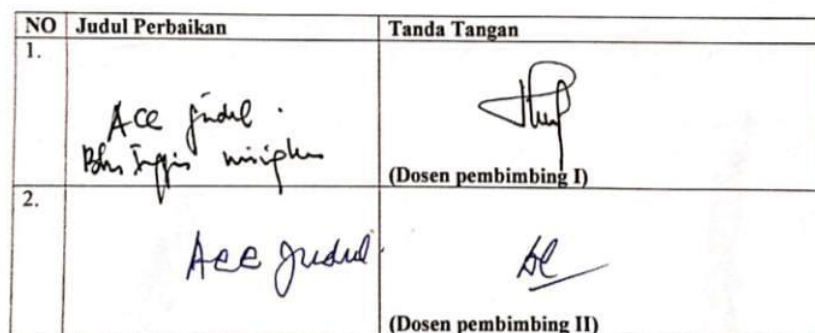 NO Judul Perbaikan Tanda Tangan
1.
Ace judul.
Bhs Inggris
(Dosen pembimbing I)
2.
Acc Judul.
(Dosen pembimbing II)